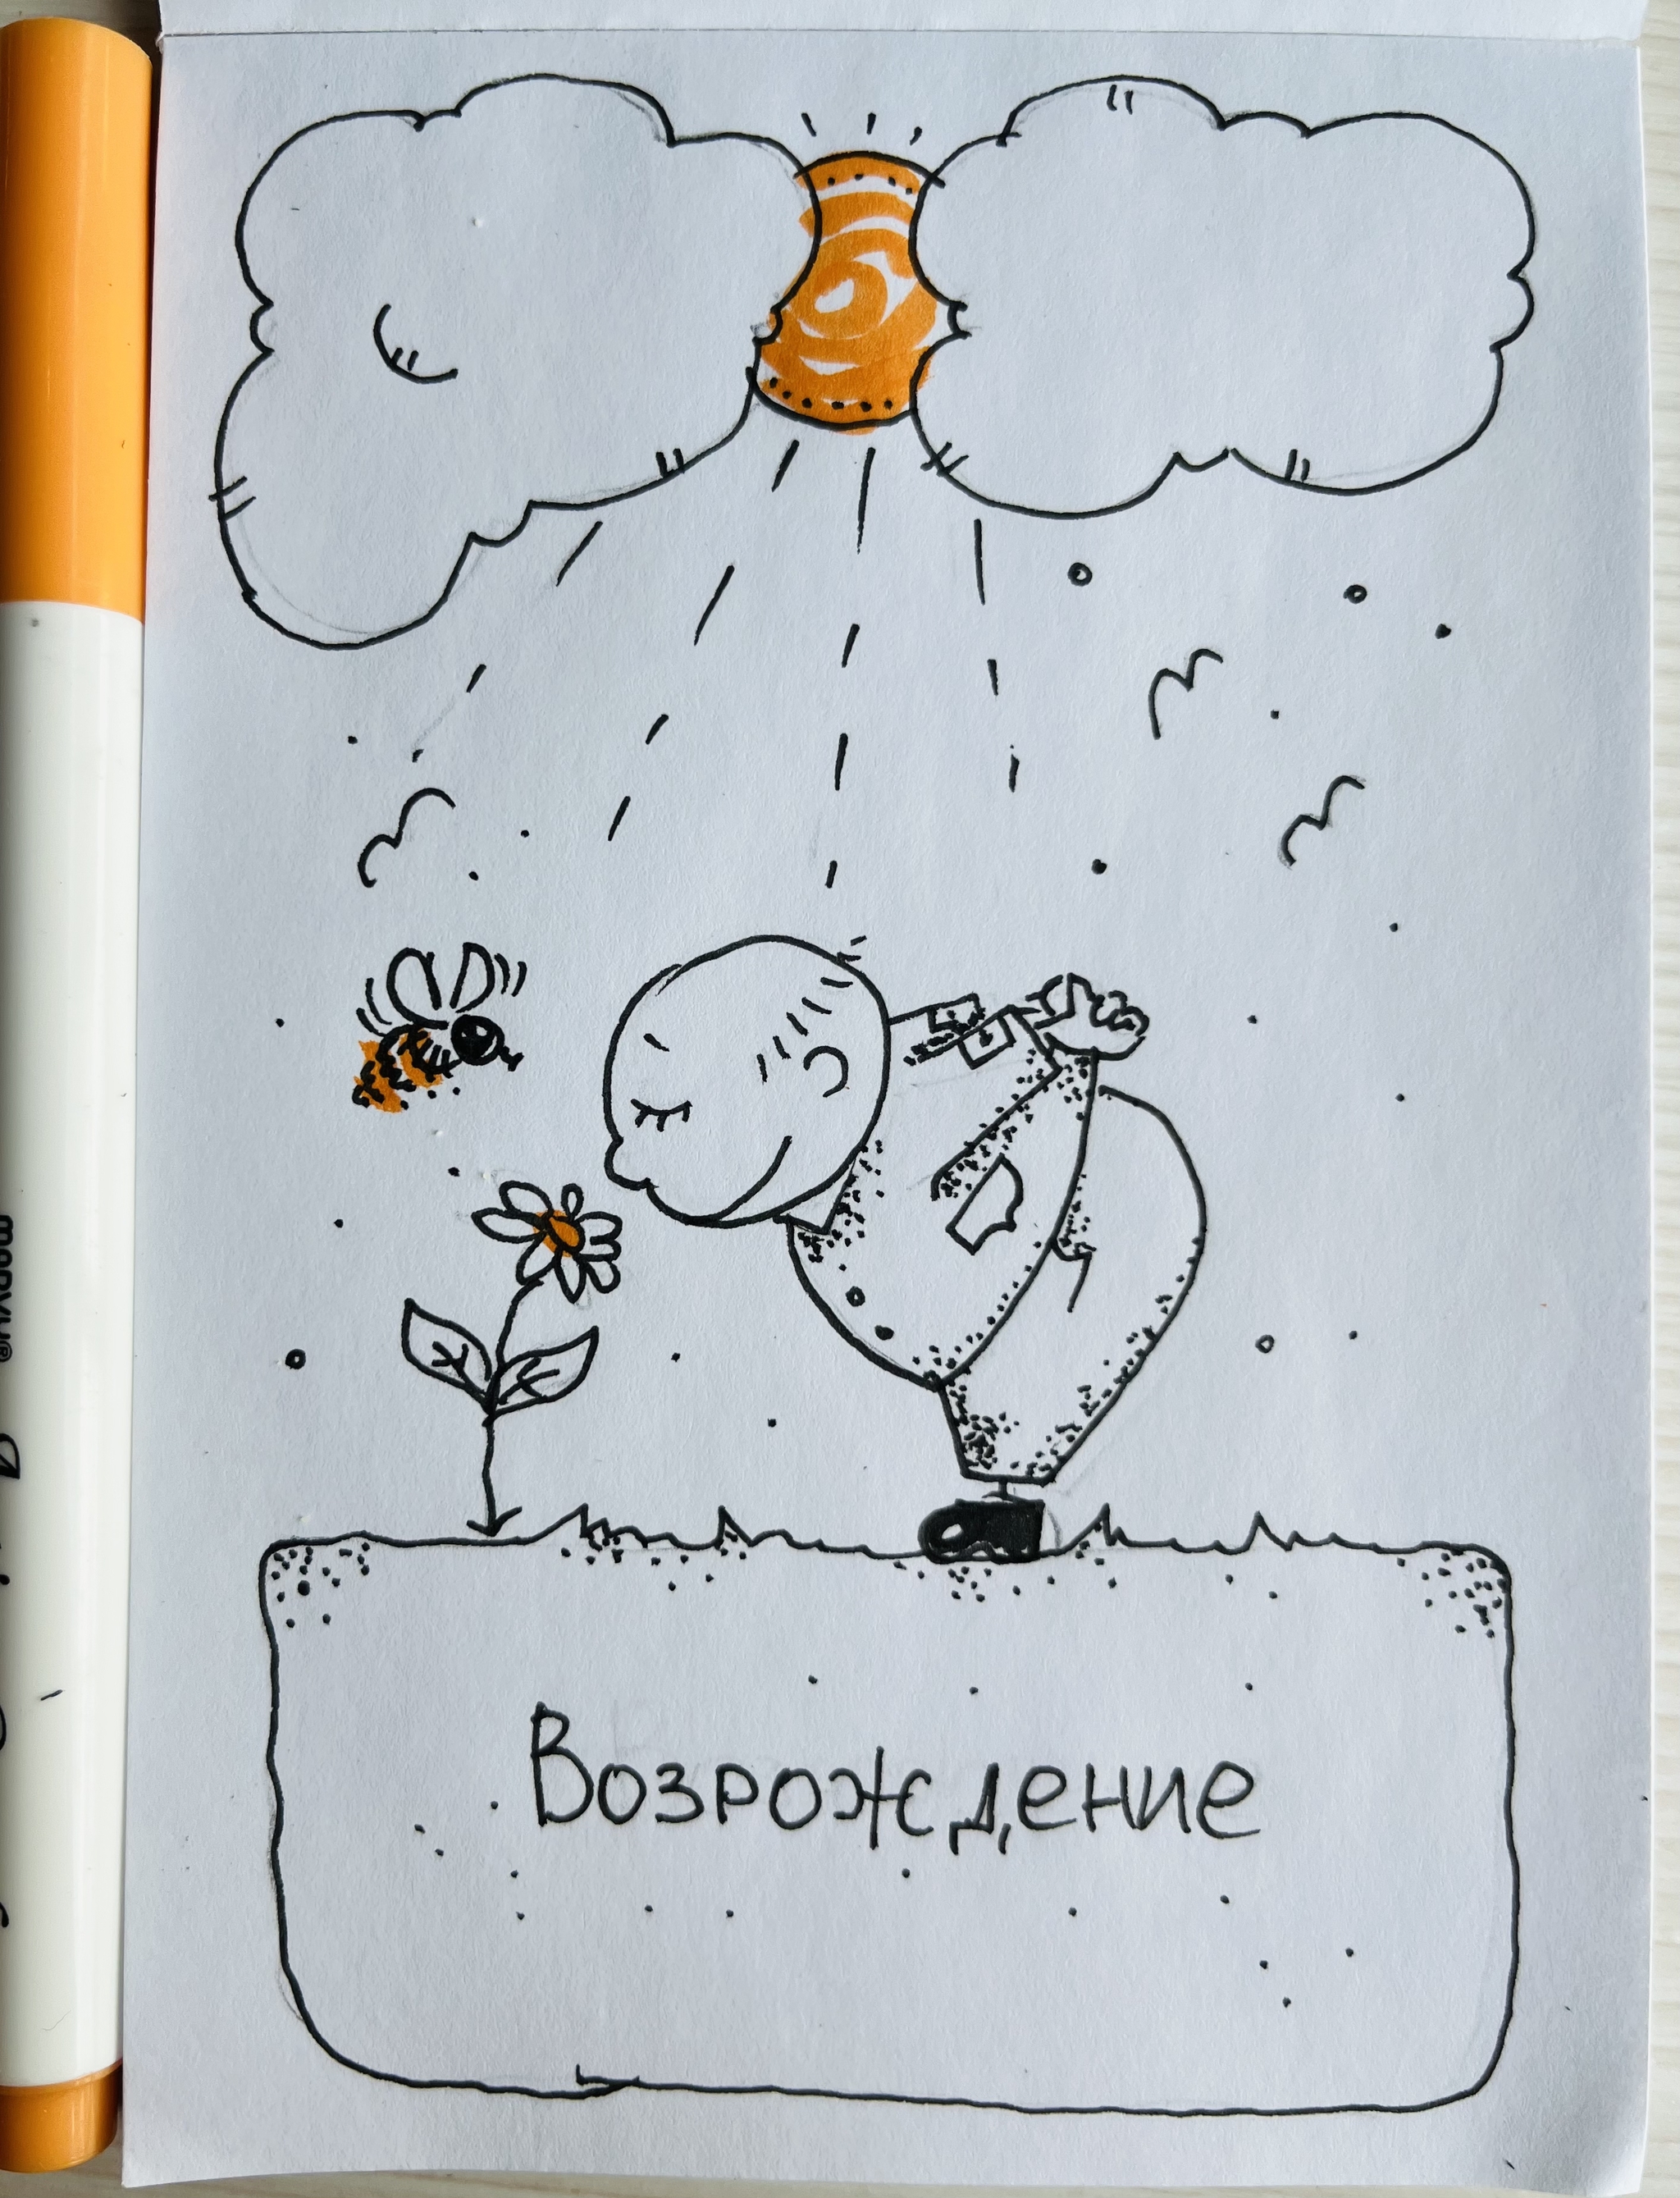 Возрождение